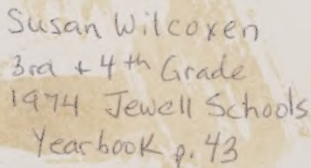 Susan Wilcoxen
3rd + 4th Grade
1974 Jewell Schools
Yearbook p. 43